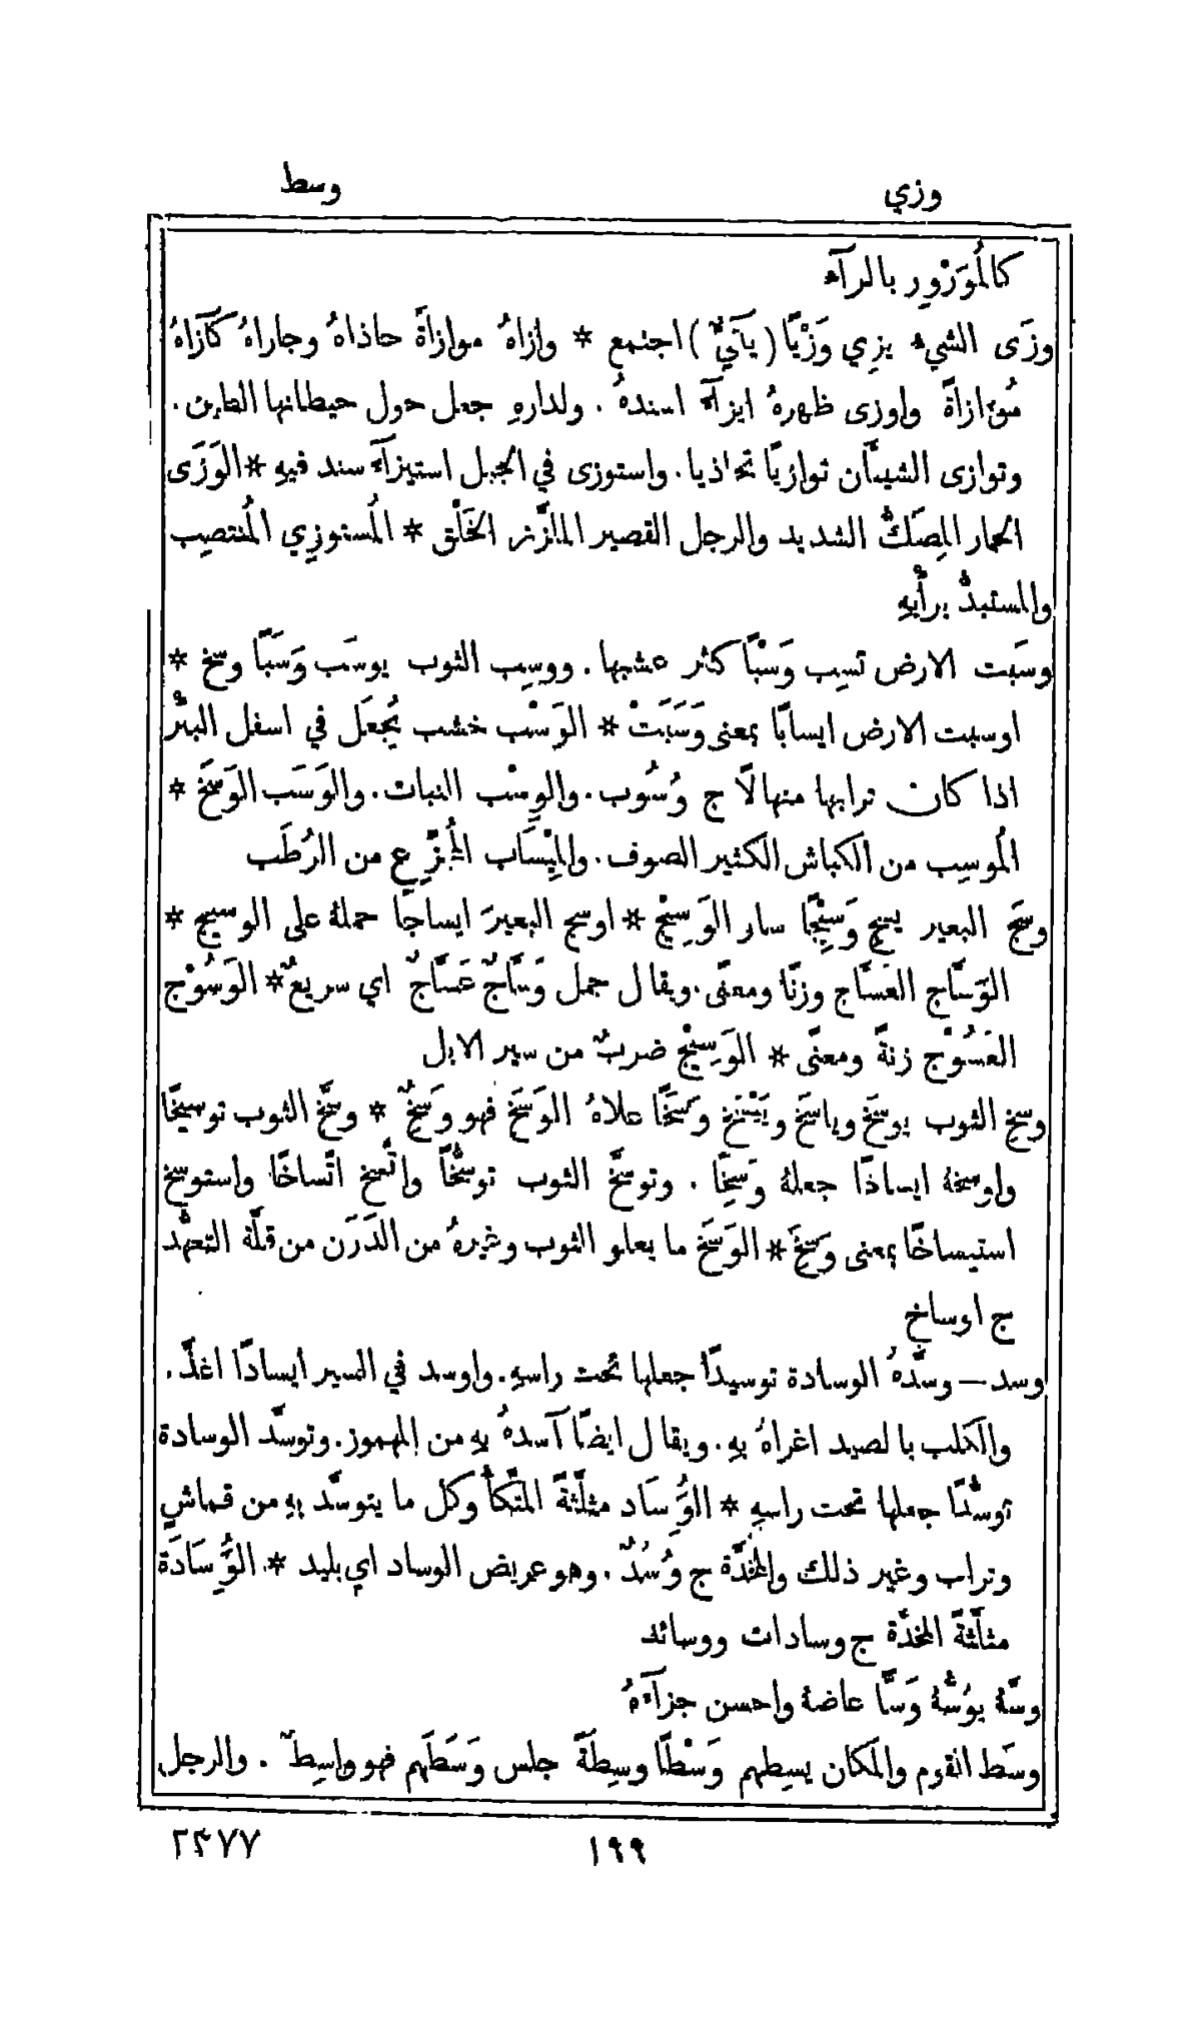 وزي
وسط
كالمُوَزْوِر بالرآء
وزَى الشيء يزِي وَزْيًا (يآئيٌّ) اجتمع * وازاهُ موازاةً حاذاهُ وجاراهُ كَآزاهُ
مُؤازاةً واوزى ظهرهُ ايزآءً اسندهُ . ولدارهِ جعل حول حيطانها الطين .
وتوازى الشيئَان توازيًا تحاذيا . واستوزى في الجبل استيزآءً سند فيهِ * الوَزَى
الحمار المِصَكُّ الشديد والرجل القصير الملزَّز الخَلْق * المُستوزِي المُنتصِب
والمستبدُّ برأْيهِ
وسَبت الارض تسِب وَسْبًا كثر عشبها . ووسِب الثوب يوسَب وَسَبًا وسخ *
اوسبت الارض ايسابًا بمعنى وَسَبَتْ * الوَسْب خشب يُجعَل في اسفل البئْر
اذا كان ترابها منهالًا ج وُسُوب . والوِسْب النبات . والوَسَب الوَسَخ *
المُوسِب من الكباش الكثير الصوف . والمِيْسَاب المُجزِّع من الرُطَب
وسَج البعير يسِج وَسِيْجًا سار الوَسِيْج * اوسج البعيرَ ايساجًا حملهُ على الوسيج *
الوَسَّاج العَسَّاج وزنًا ومعنًى . ويقال جمل وَسَّاجٌ عَسَّاجٌ اي سريعٌ * الوَسُوْج
العَسُوْج زنةً ومعنًى * الوَسِيْج ضربٌ من سير الابل
وسِخ الثوب يوسَخ وياسَخ ويَيْسَخ وَسَخًا علاهُ الوَسَخ فهو وَسِخٌ * وسَّخ الثوب توسيخًا
واوسخهُ ايساخًا جعلهُ وَسِخًا . وتوسَّخ الثوب توسُّخًا واتَّسخ اتّساخًا واستوسخ
استيساخًا بمعنى وَسِخَ * الوَسَخ ما يعلو الثوب وغيرهُ من الدَرَن من قلَّة التعهُّد
ج اوساخ
وسد — وسَّدهُ الوسادة توسيدًا جعلها تحت راسهِ . واوسد في السير ايسادًا اغذَّ .
والكلب بالصيد اغراهُ بهِ . ويقال ايضًا آسدهُ بهِ من المهموز . وتوسَّد الوسادة
توسُّدًا جعلها تحت راسهِ * الوُِسَاد مثلَّثةً المتَّكأُ وكل ما يتوسَّد بهِ من قماشٍ
وتراب وغير ذلك والمخدَّة ج وُسُدٌ . وهو عريض الوساد اي بليد * الوُِسَادَة
مثلَّثةً المخدَّة ج وسادات ووسائد
وسَّهُ يوُسُّهُ وَسًّا عاضهُ واحسن جزآءَهُ
وسَط القوم والمكان يسِطهم وَسْطًا وسِطَةً جلس وَسَطَهم فهو واسِطٌ . والرجل
١٩٩
٢٢٧٧